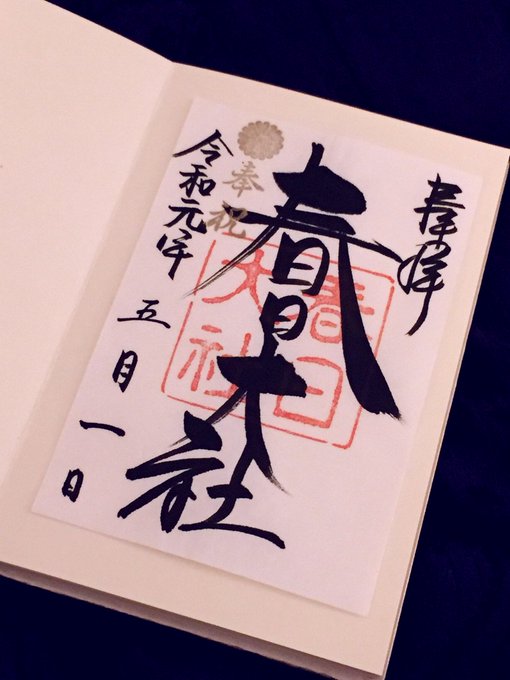 奉拝
春日大社
春日
大社
奉祝
令和元年
五月一日